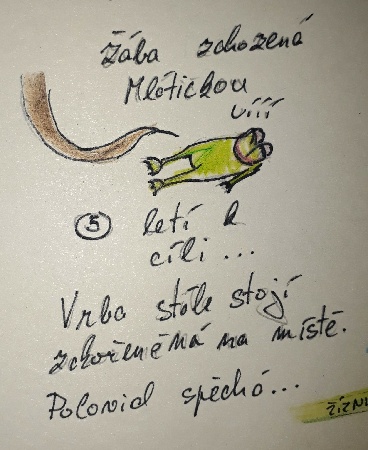 Žába zhozená
Mlátičkou
Uííí
5 letí k
cíli ...
Vrba stále stojí
zkořeněná na místě.
Polonid spěchá...